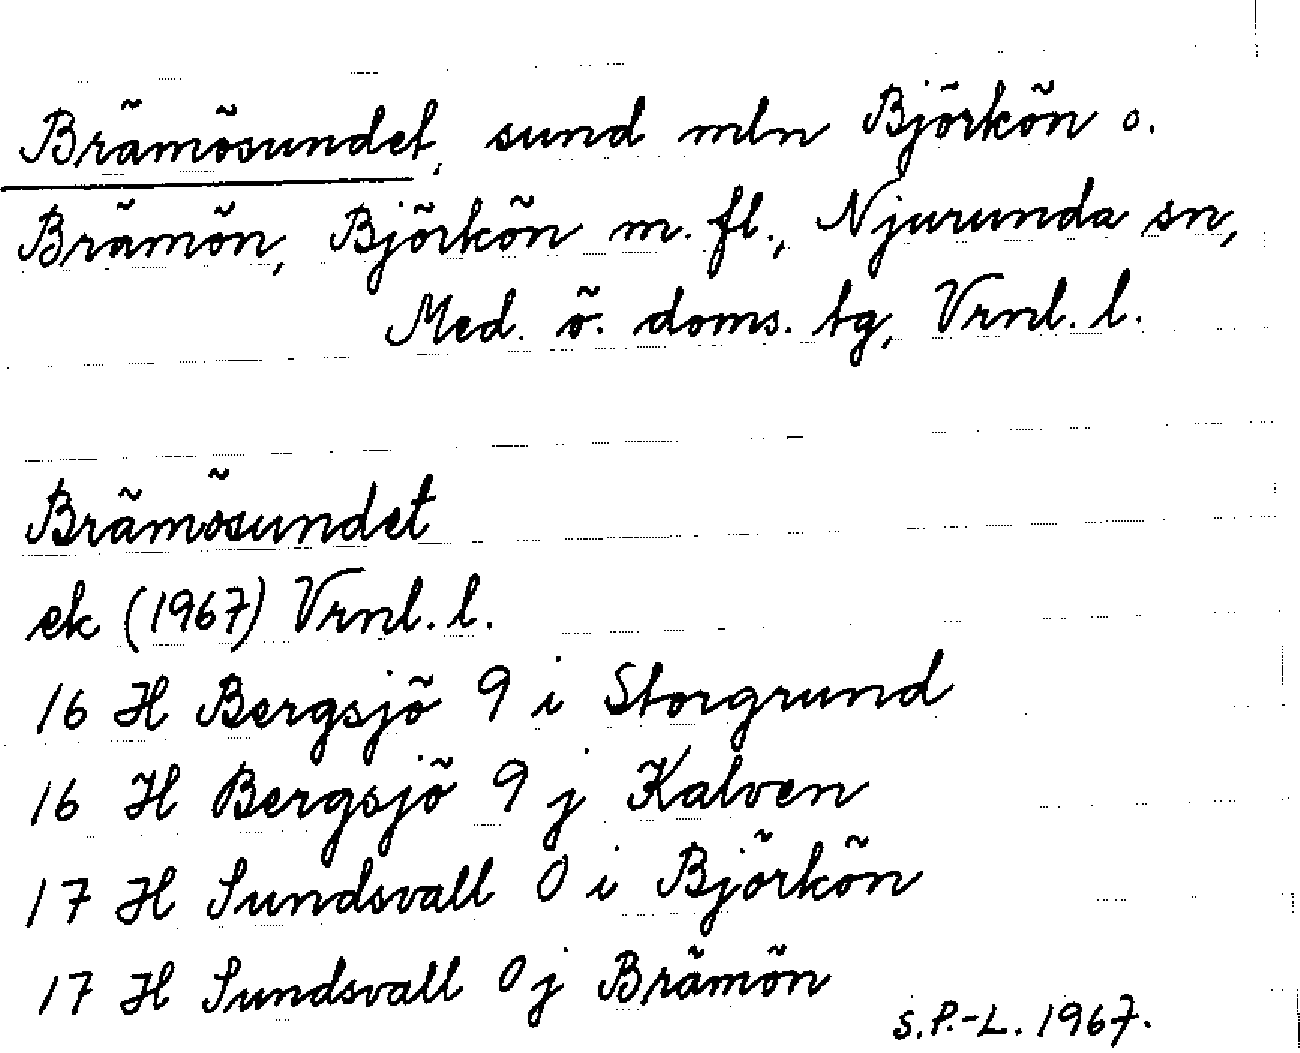 Brämösundet, sund mln Björkön o.
Brämön, Björkön m. fl., Njurunda sn,
Med. ö. doms. tg, Vrnl. l.
Brämösundet
ek (1967) Vrnl. l.
16 H Bergsjö 9 i Storgrund
16 H Bergsjö 9 j Kalven
17 H Sundsvall 0 i Björkön
17 H Sundsvall 0 j Brämön
S.P.-L. 1967.